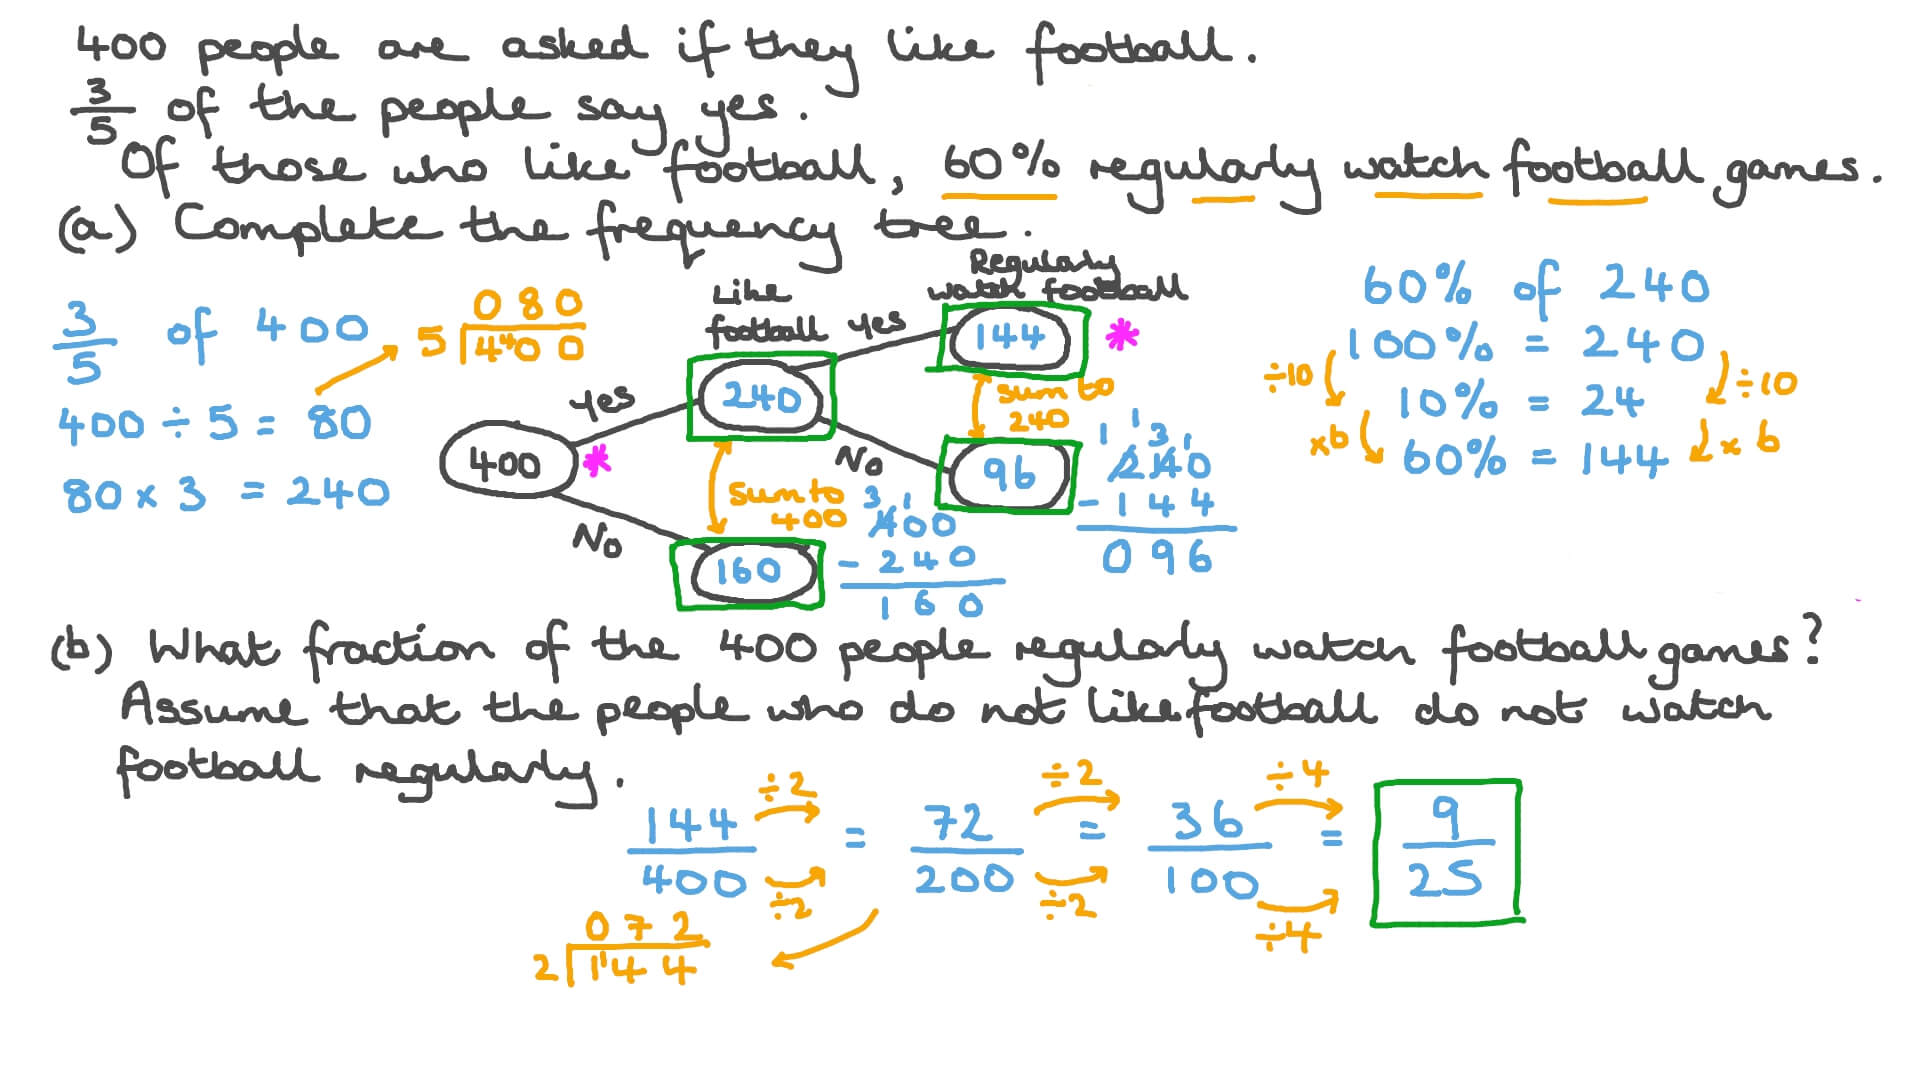 400 people are asked if they like football.
3/5 of the people say yes.
Of those who like football, 60% regularly watch football games.
(a) Complete the frequency tree.
3/5 of 400
400 ÷ 5 = 80
80 × 3 = 240
080
5 400
400
Yes
No
Like
football
240
160
sum to
400
3 1
400
- 240
160
Yes
No
Regularly
watch football
144
*
*
96
sum to
240
1 1 3 1
240
- 144
096
60% of 240
100% = 240
÷10 ÷10
10% = 24
×6 ×6
60% = 144
(b) What fraction of the 400 people regularly watch football games?
Assume that the people who do not like football do not watch
football regularly.
÷2 ÷2 ÷4
144/400 = 72/200 = 36/100 = 9/25
÷2 ÷2 ÷4
072
2 1144